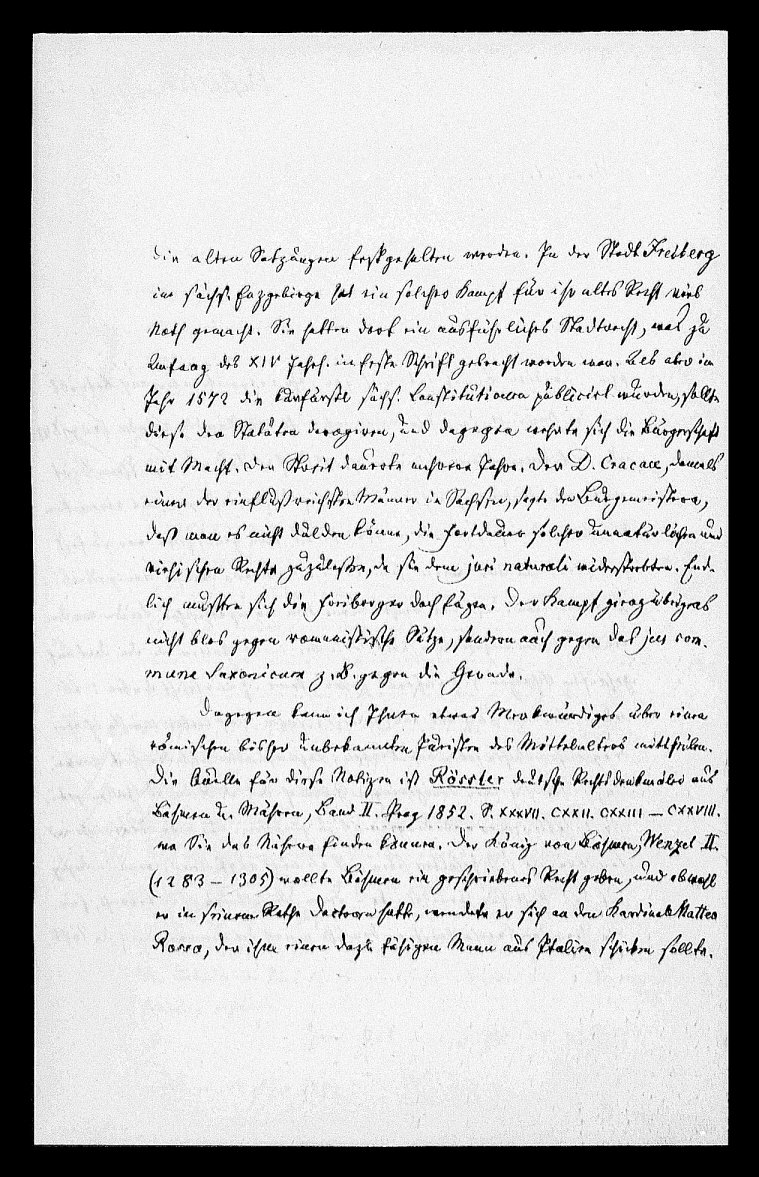 die alten Satzungen festgehalten werden. In der Stadt Freiberg
im sächs. Erzgebirge hat ein solcher Kampf für ihr altes Recht viel
Noth gemacht. Sie hatten dort ein ausführliches Stadtrecht, was zu
Anfang des XIV Jahrh. in feste Schrift gebracht worden war. Als aber im
Jahr 1572 die kurfürstl sächs. Constitutionen publicirt wurden, sollten
diese den Statuten derogiren, und dagegen wehrte sich die Bürgerschaft
mit Macht. Der Streit dauerte mehrere Jahre. Der D. Cracau, damals
einer der einflußreichsten Männer in Sachsen, sagte den Bürgemeistern,
daß man es nicht dulden könne, die Fortdauer solcher unnatürlichen und
viehischen Rechte zuzulassen, da sie dem juri naturali widerstrebten. End-
lich mußten sich die Freiberger doch fügen. Der Kampf ging übrigens
nicht blos gegen romanistische Sätze, sondern auch gegen das jus com-
mune Saxonicum z. B. gegen die Gerade.
Dagegen kann ich Ihnen etwas Merkwürdiges über einen
römischen bisher unbekannten Juristen des Mittelalters mittheilen.
Die Quelle für diese Notizen ist Rössler deutsche Rechtsdenkmäler aus
Böhmen u. Mähren, Band II. Prag 1852. S. XXXVII. CXXII. CXXIII — CXXVIII.
wo Sie das Nähere finden können. Der König von Böhmen, Wenzel II.
(1283 – 1305) wollte Böhmen ein geschriebenes Recht geben, und obwohl
er in seinem Rathe Doctoren hatte, wendete er sich an den Kardinal Matteo
Rosso, der ihm einen dazu fähigen Mann aus Italien schicken sollte.